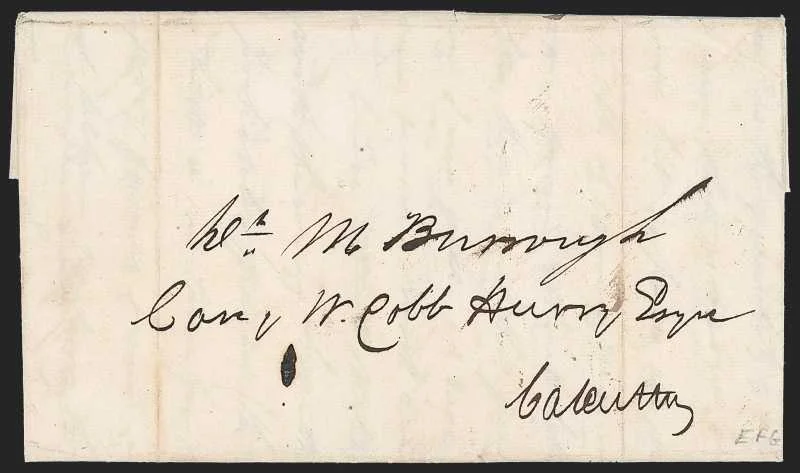 M Burrough
Care of W. Cobb Hurry Esqre
Calcutta
EFG